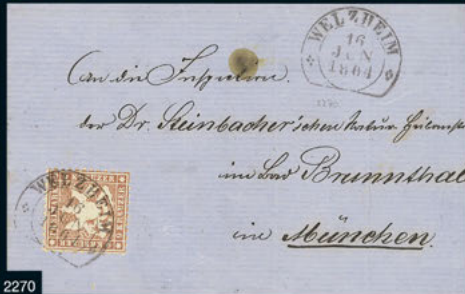 WELZHEIM
16
JUN
1864
An die Inspection
der Dr. Steinbacher'schen Natur-Heilanst
im Bad Brunnthal
in München.
WELZHEIM
2270